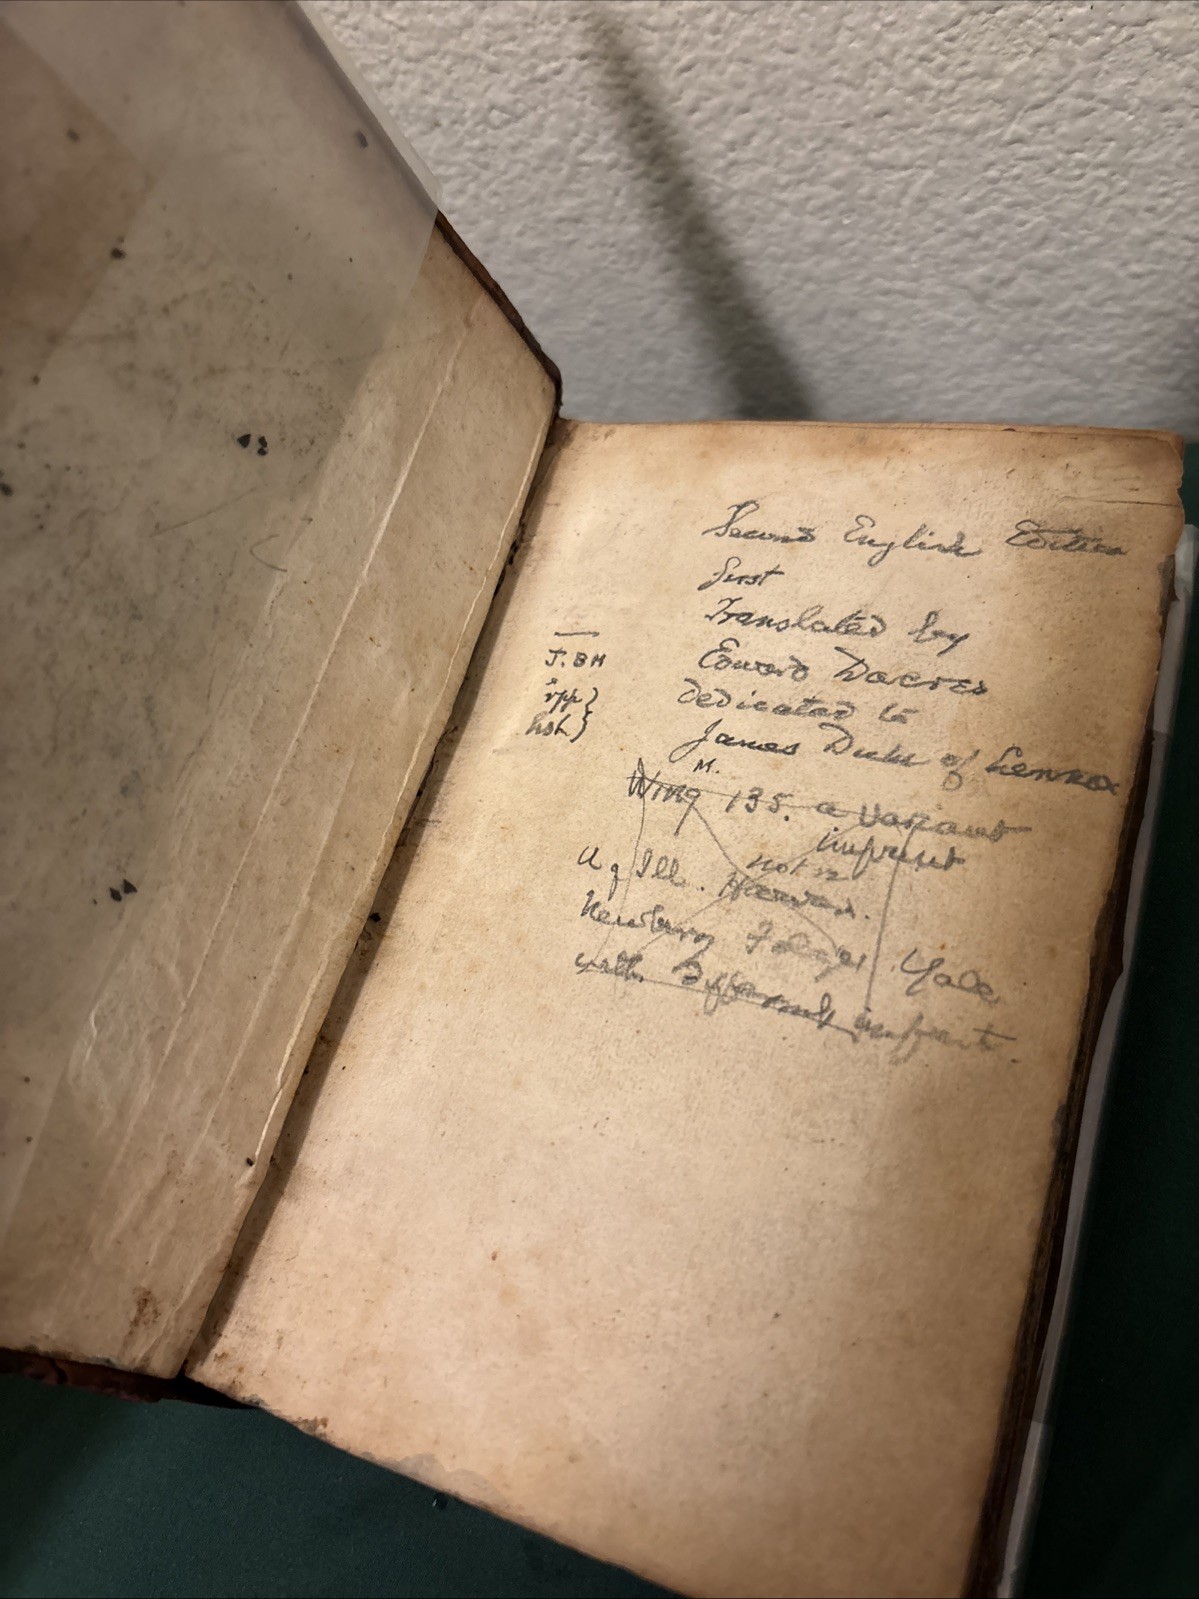 Second English Edition
first
Translated by
Edward Dacres
dedicated to
James Duke of Lennox
M.
Wing 135. a variant
imprint
not in
U of Ill. Harvard.
Newberry Folger Yale
with different imprint.
J. BM